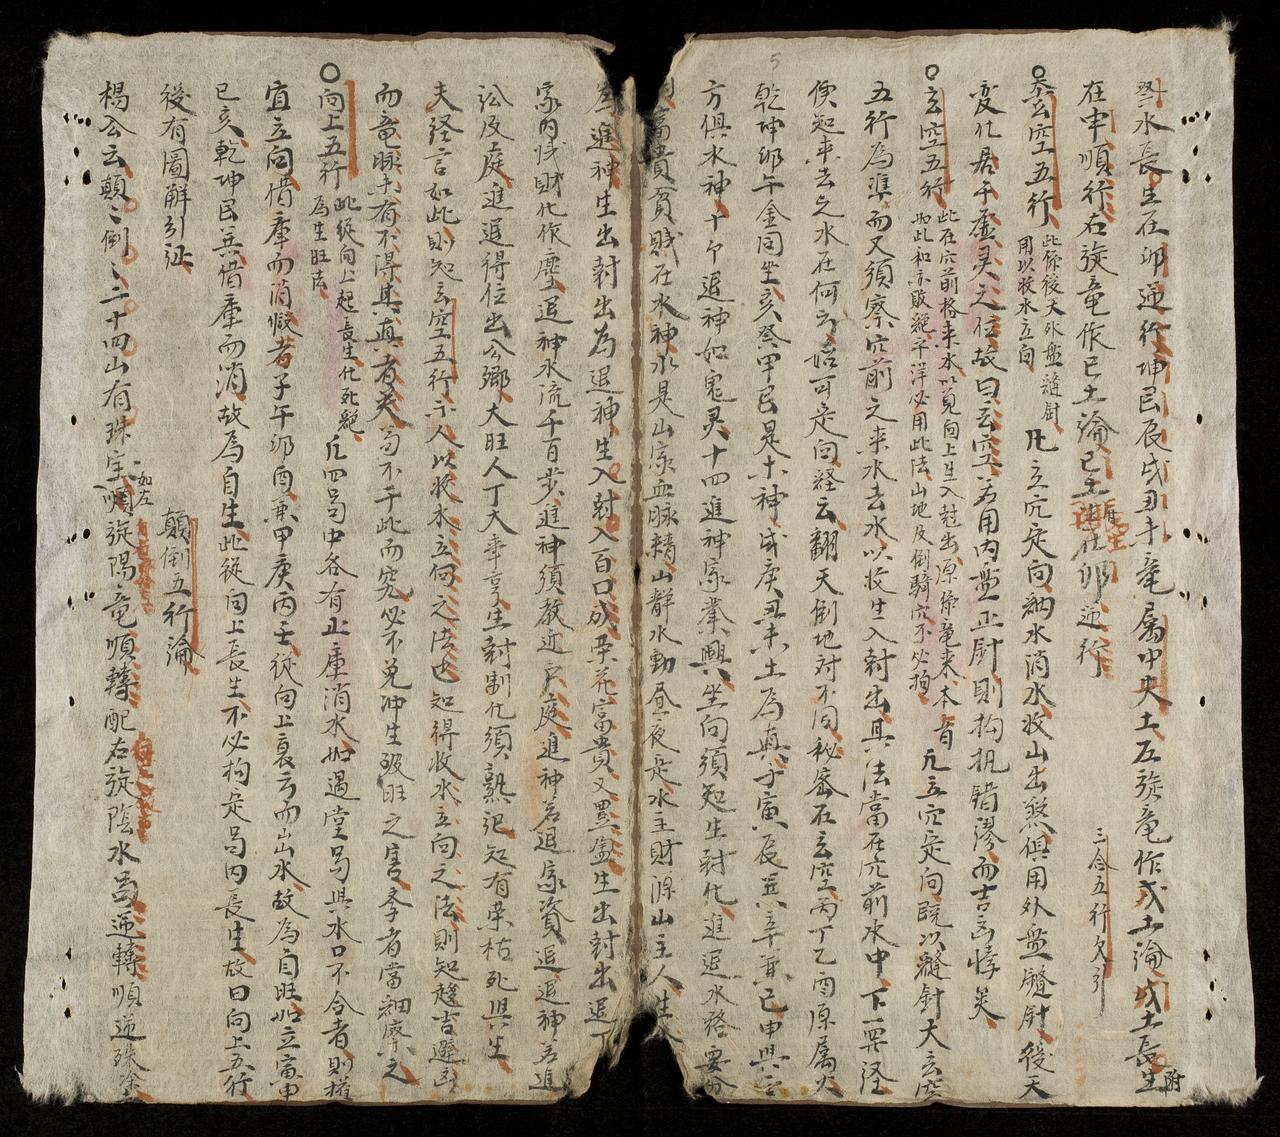 癸水長生在卯逆行坤艮辰戌丑未竜属中央土左旋竜作戊土論戊土長生附
在申順行右旋竜作己土論己土
逆行
三合五行欠引
玄空五行
此係後天外盤縫針
用以收水立向
凡立穴定向納水消水收山出煞俱用外盤縫針後天
変化居于虚灵之位故曰玄空若用内盤正針則拘執錯謬而吉凶悖矣
玄空五行
此在穴前格来水以見向上生入尅出原係竜来本首
如此和亦敗絶平洋必用此法山地及倒騎穴不必拘
凡立穴定向既以縫針大玄空
五行為準而又須察穴前之来水去水以收生入尅出其法當在穴前水中下一羅経
便知来去之水在何方始可定向経云翻天倒地対不同秘密在玄空丙丁乙酉原属火
乾坤卯午金同坐亥癸甲艮是木神戌庚丑未土為真子寅辰巽辛兼己申與壬
方俱水神十个退神如鬼灵十四進神家業興坐向須知生尅化進退水路要分
富貴貧賤在水神水是山家血脉精山静水動昼夜定水主財源山主人生
為進神生出尅出為退神生入尅入百口成栄花富貴又異盡生出尅出退
家内伐財化作塵退神水流千百歩進神須教近户庭進神若退家資退退神若進
訟反庭進退得位出公卿大旺人丁大亨亨生尅制化須熟記知有栄枯死與生
夫経言如此則知玄空五行示人以收水立向之法也知得收水立向之法則知趨吉避凶
而竜脉未有不得其真者矣苟不于此而究必不免冲生破旺之害孝者當細察之
向上五行
此従向上起長生化死絶
為生旺法
凡四局中各有正庫消水如遇堂局與水口不合者則權
宜立向借庫而消假者子午卯酉兼甲庚丙壬従向上衰方而出水故為自旺如立寅申
巳亥乾坤艮巽借庫而消故為自生此従向上長生不必拘定局内長生故曰向上五行
後有圖解引証
顛倒五行論
楊公云顛〻倒〻二十四山有珠宝順
如左
旋陽竜順轉配右旋陰水局逆轉順逆珠